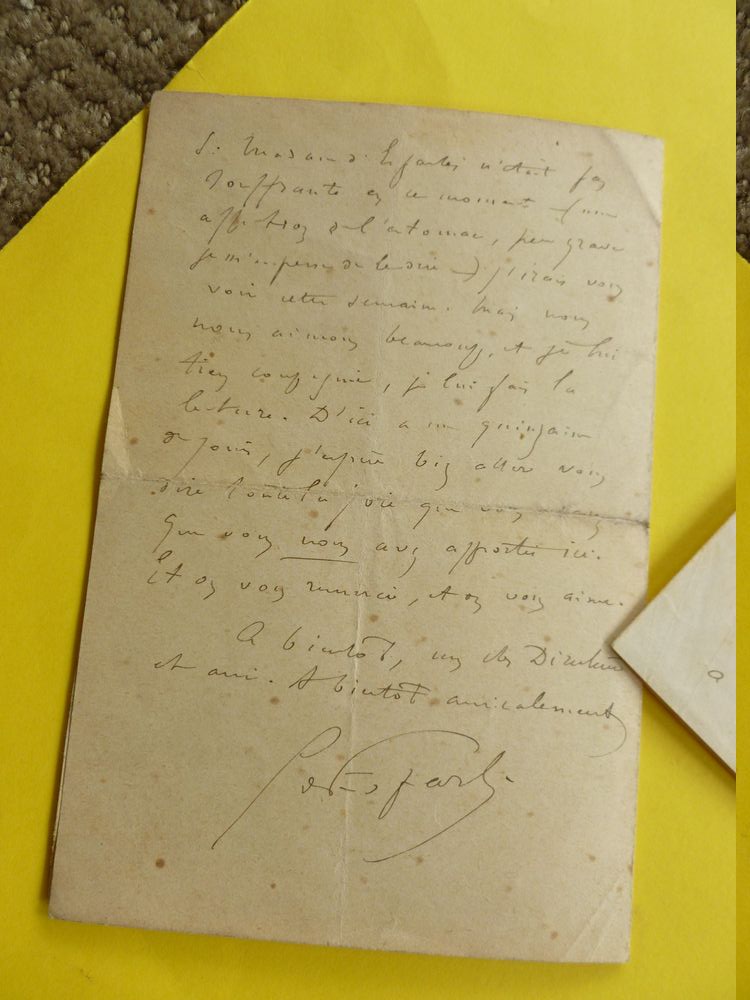 Si Madame Esparbès n'était pas
souffrante en ce moment (une
affection de l'estomac, peu grave
je m'empresse de le dire —) j'irais vous
voir cette semaine. Mais nous
nous aimons beaucoup, et je lui
tiens compagnie, je lui fais la
lecture. D'ici a une quinzaine
de jours, j'espère bien aller vous
dire toute la joie que vous
que vous nous avez apportée ici.
Et on vous remercie, et on vous aime.
A bientôt, mon cher Directeur
et ami. A bientôt amicalement
a